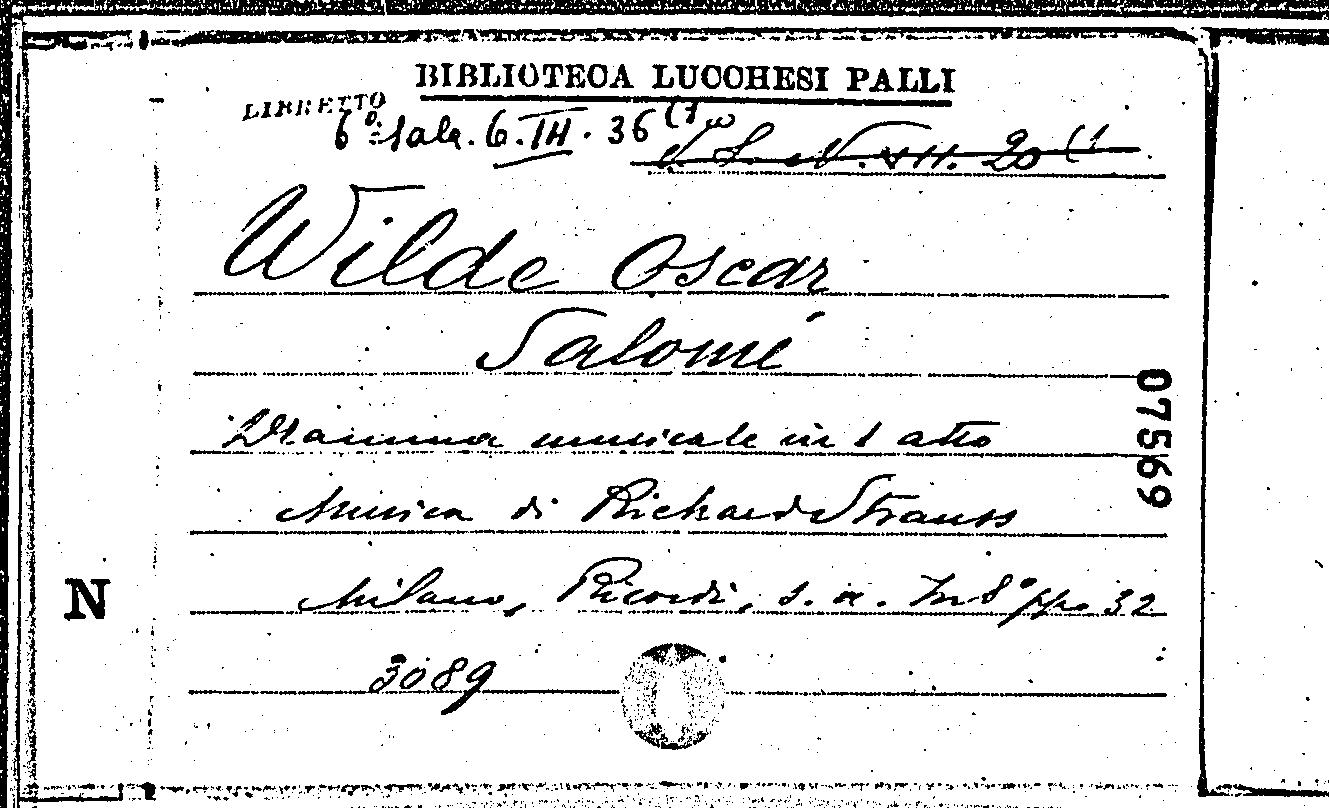 BIBLIOTECA LUCCHESI PALLI
LIBRETTO
6º Sala. 6. III. 36 (1
N. XII. 20 (1
Wilde Oscar
Salomé
Dramma musicale in 1 atto
Musica di Richard Strauss
Milano, Ricordi, s. a. In 8º pp. 32
3089
07569
N